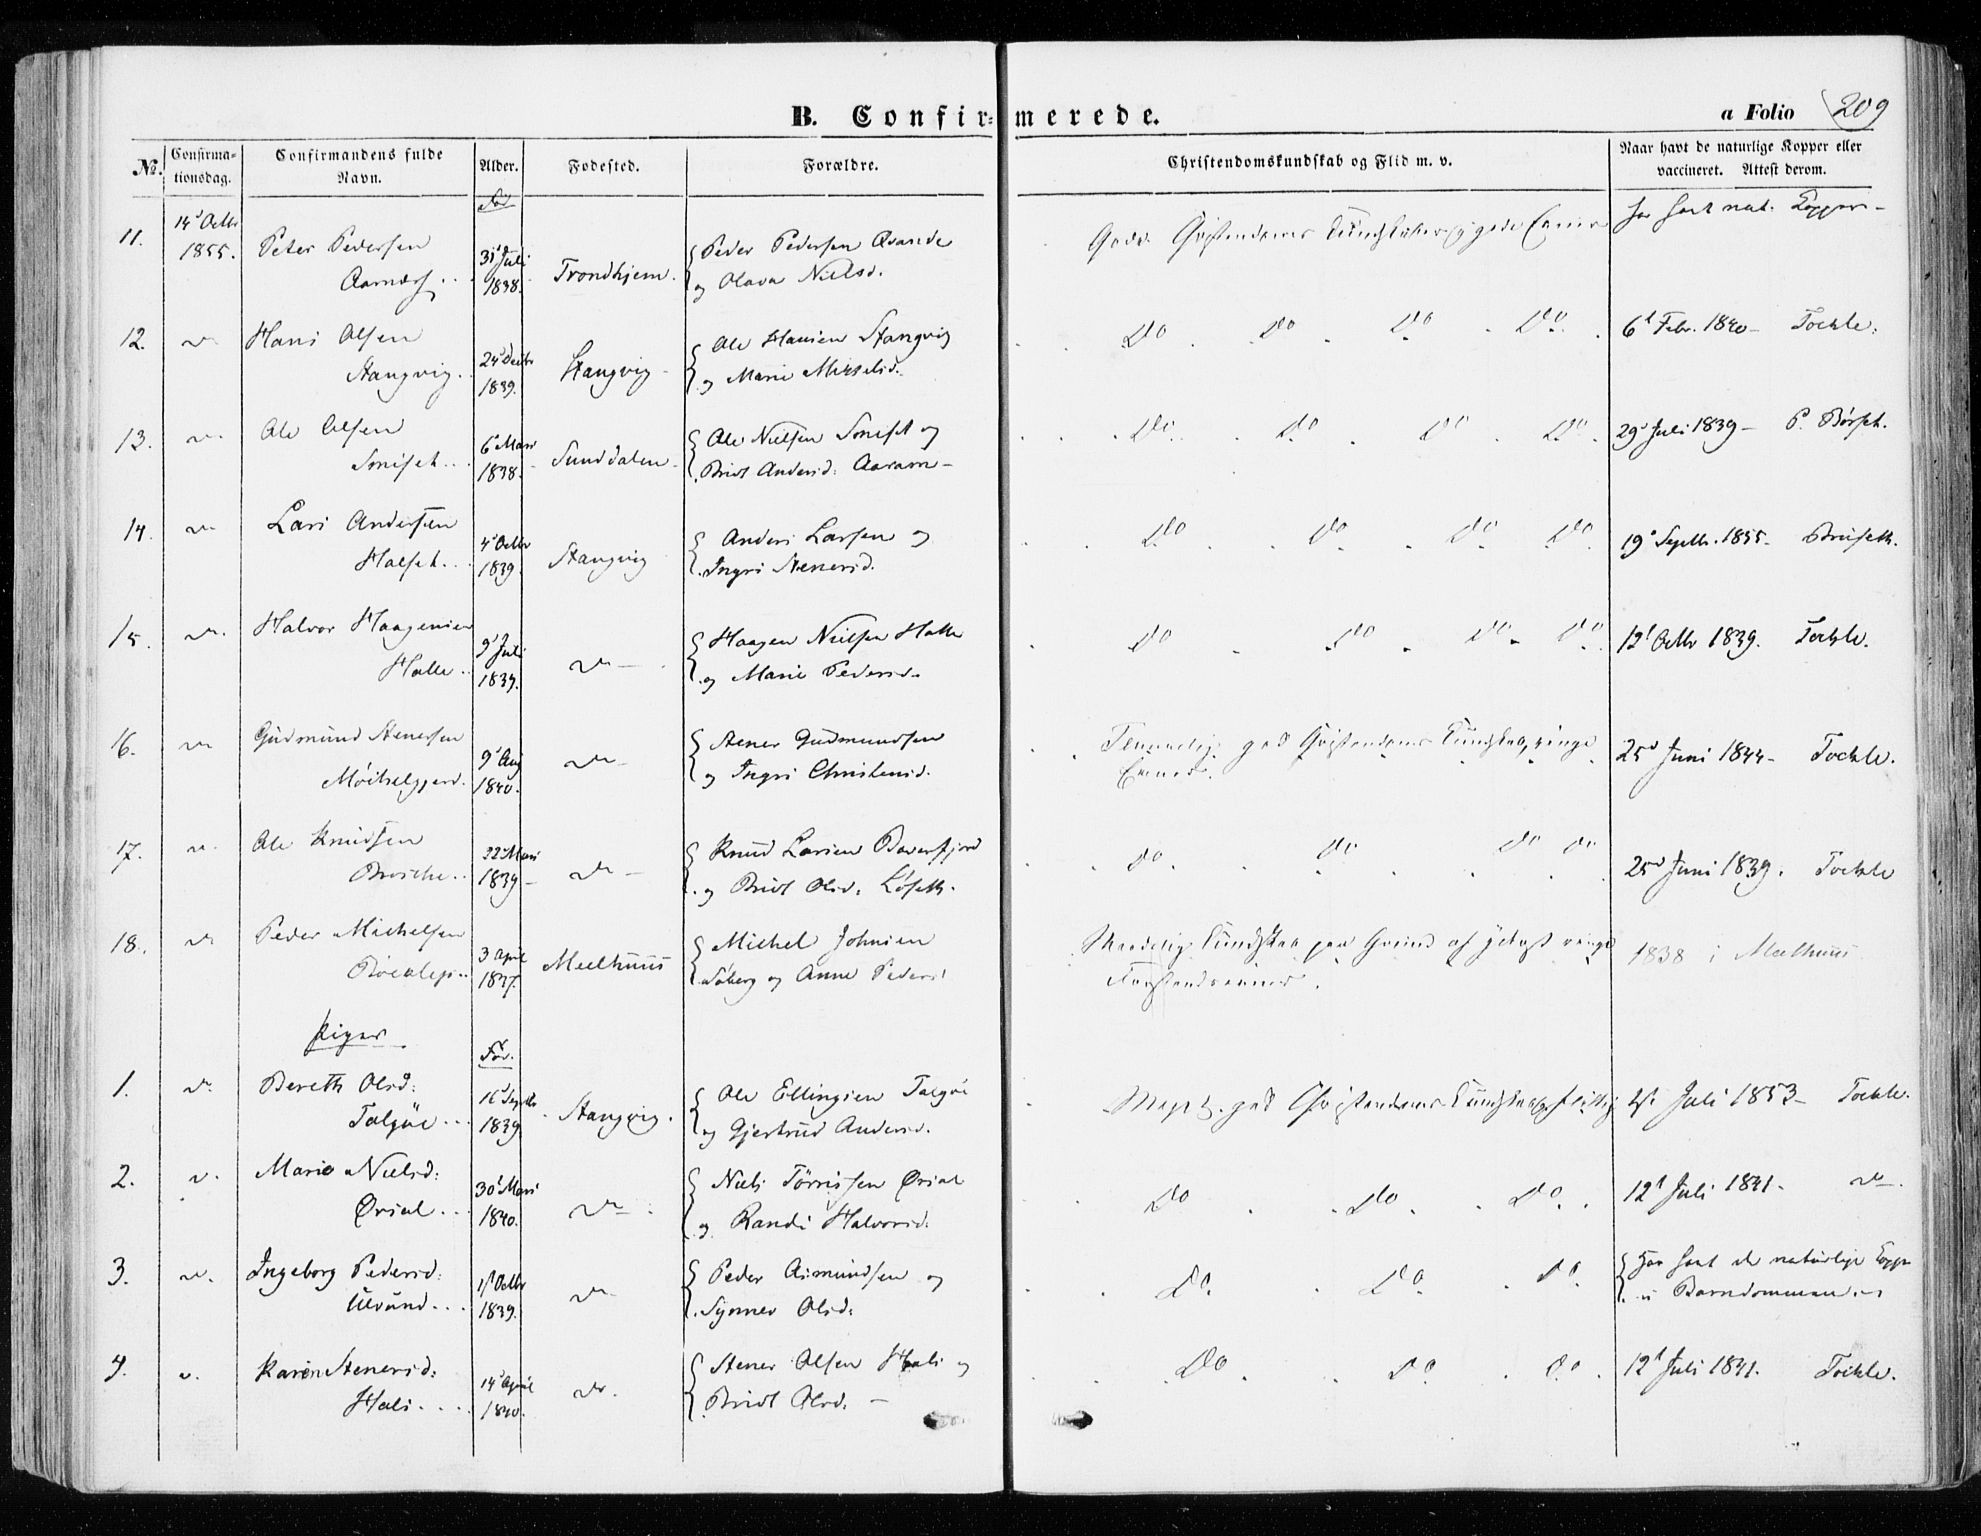 B. Confir=merede.
a Folio 209
No. Confirma-tionsdag. Confirmandens fulde Navn. Alder. Fødested. Forældre. Christendomskundskab og Flid m. v. Naar havt de naturlige Kopper eller vaccineret. Attest derom.
11. 14d Octbr 1855. Peter Pedersen 31 Juli 1838. Trondhjem. Peder Pedersen Qvande og Olava Nielsd. har havt nat. Kopper
12. do Hans Olsen Stangvig 24d Decbr 1839. Stangvig Ole Hansen Stangvig og Marie Mikkelsd. Do Do Do Do 6d Febr. 1840 Tockle.
13. do Ole Olsen 6d Mars 1838. Sunddalen Ole Nielsen og Bridt Andersd. Do Do Do Do 29d Juli 1839 P. Børset.
14. do Lars Andersen Halset 4d Octbr 1839. Stangvig Anders Larsen og Ingri Stenersd. Do Do Do Do 19d Septbr. 1855.
15. do Halvor Haagensen Halle 9d Juli 1839. do Haagen Nielsen Halle og Marie Pedersd. Do Do Do Do 12d Octbr 1839. Tockle.
16. do Gudmund Stenersen 9d Aug 1840. do Stener Gudmundsen og Ingri Christensd. Temmelig god Christendoms Kundskab, ringe Evner. 25d Juni 1844 Tockle.
17. do Ole Knudsen 22d Mars 1839 do Knud Larsen Bæverfjord og Bridt Olsd. Løseth. Do Do Do Do 25d Juni 1839. Tockle
18. do Peder Michelsen 3 April 1837. Meelhuus Michel Johnsen Søberg og Anne Pedersd Maadelig Kundskab paa Grund af ringe Forstandsevner. 1838 i Meelhuus
Piger Fød.
1. do Bereth Olsd: Talgøe 16d Septbr 1839 Stangvig. Ole Ellingsen Talgøe og Gjertrud Andersd. Meget god Christendoms Kundskab, flittig Juli 1853 Tockle.
2. do Marie Nielsd: Ørsal 30d Mars 1840. do Niels Tørrissen Ørsal og Randi Halvorsd. Do Do Do. 12d Juli 1841. do
3. do Ingeborg Pedersd: Ulvund 1d Octbr 1839. do Peder Asmundsen og Synnev Olsd: Do. Do. Do. Har havt de naturlige Kopper i Barndommen
4. do Karen Stenersd: Hals 14d April 1840. do. Stener Olsen Hals og Bridt Olsd. Do Do Do 12d Juli 1841. Tockle.